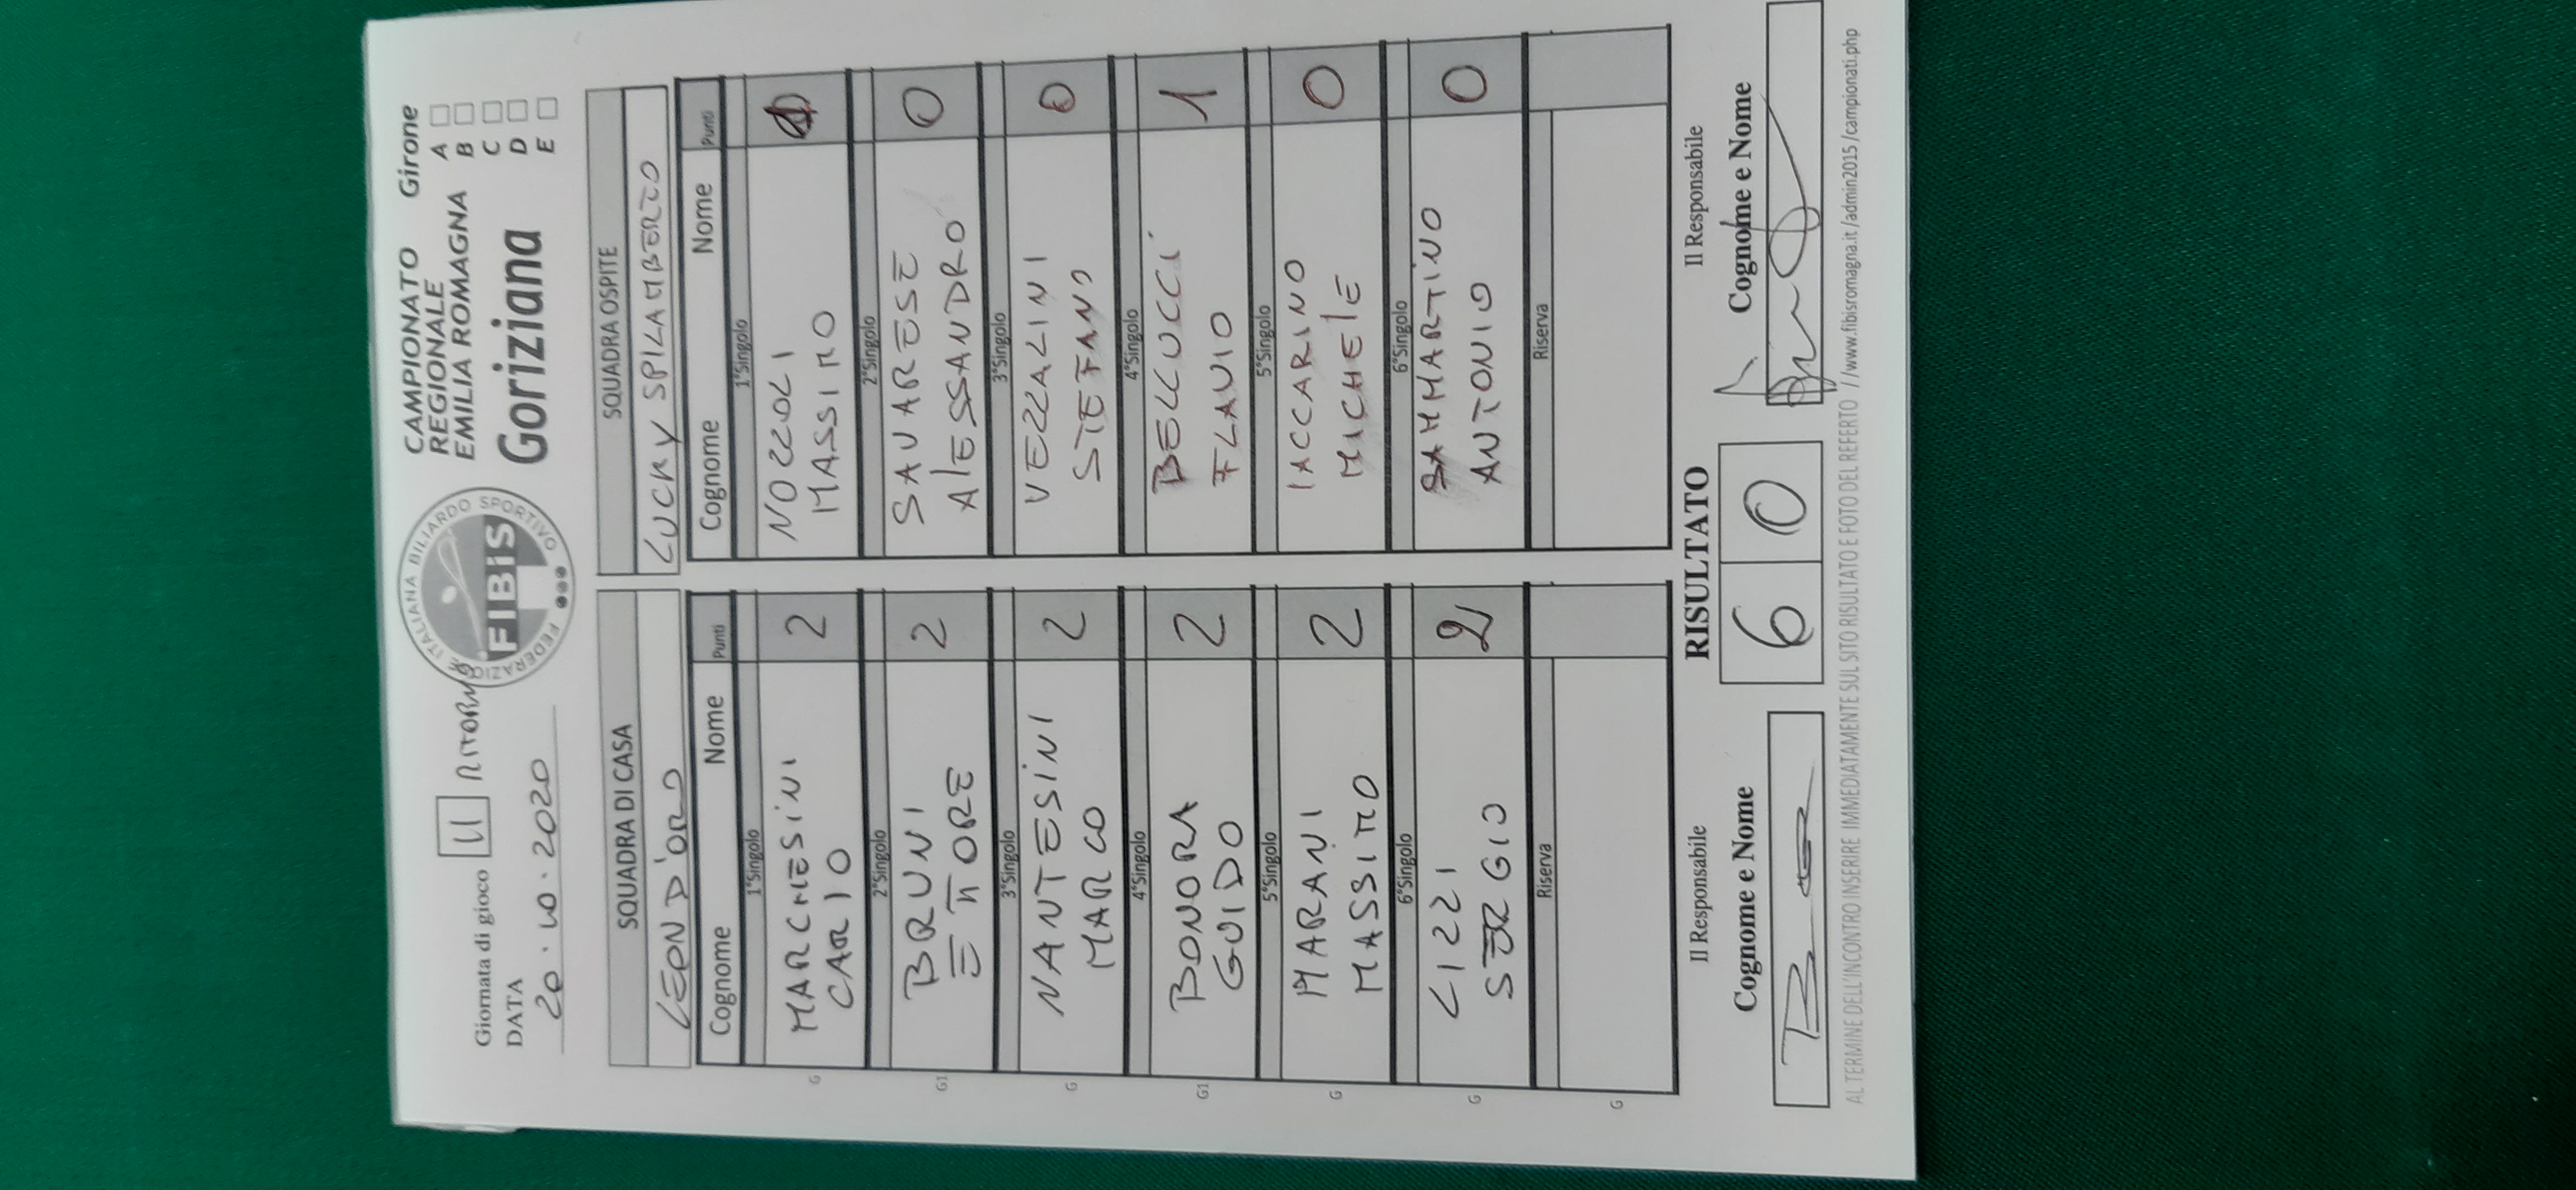 Giornata di gioco U RITORNO
DATA
20.10.2020
FEDERAZIONE ITALIANA BILIARDO SPORTIVO
FIBiS
CAMPIONATO
REGIONALE
EMILIA ROMAGNA
Goriziana
Girone
A
B
C
D
E
SQUADRA DI CASA
LEON D'ORO
Cognome Nome Punti
1°Singolo
MARCHESiNI
CARlO 2
2°Singolo
BRUNI
ETTORE 2
3°Singolo
NANTESiNI
MARCO 2
4°Singolo
BONORA
GUIDO 2
5°Singolo
MARANI
MASSIMO 2
6°Singolo
LIZZI
SERGIO 2
Riserva
G
G1
G
G1
G
G
G
SQUADRA OSPITE
LUCKY SPILAMBERTO
Cognome Nome Punti
1°Singolo
NOZZOLI
MASSIMO
2°Singolo
SAVARESE
AlESSANDRO 0
3°Singolo
VEZZALINI
STEFANO 0
4°Singolo
BELLUCCi
FLAVIO 1
5°Singolo
IACCARINO
MICHElE 0
6°Singolo
SAMMARTiNO
ANTONIO 0
Riserva
Il Responsabile
Cognome e Nome
RISULTATO
6 0
Il Responsabile
Cognome e Nome
AL TERMINE DELL'INCONTRO INSERIRE IMMEDIATAMENTE SUL SITO RISULTATO E FOTO DEL REFERTO //www.fibisromagna.it/admin2015/campionati.php